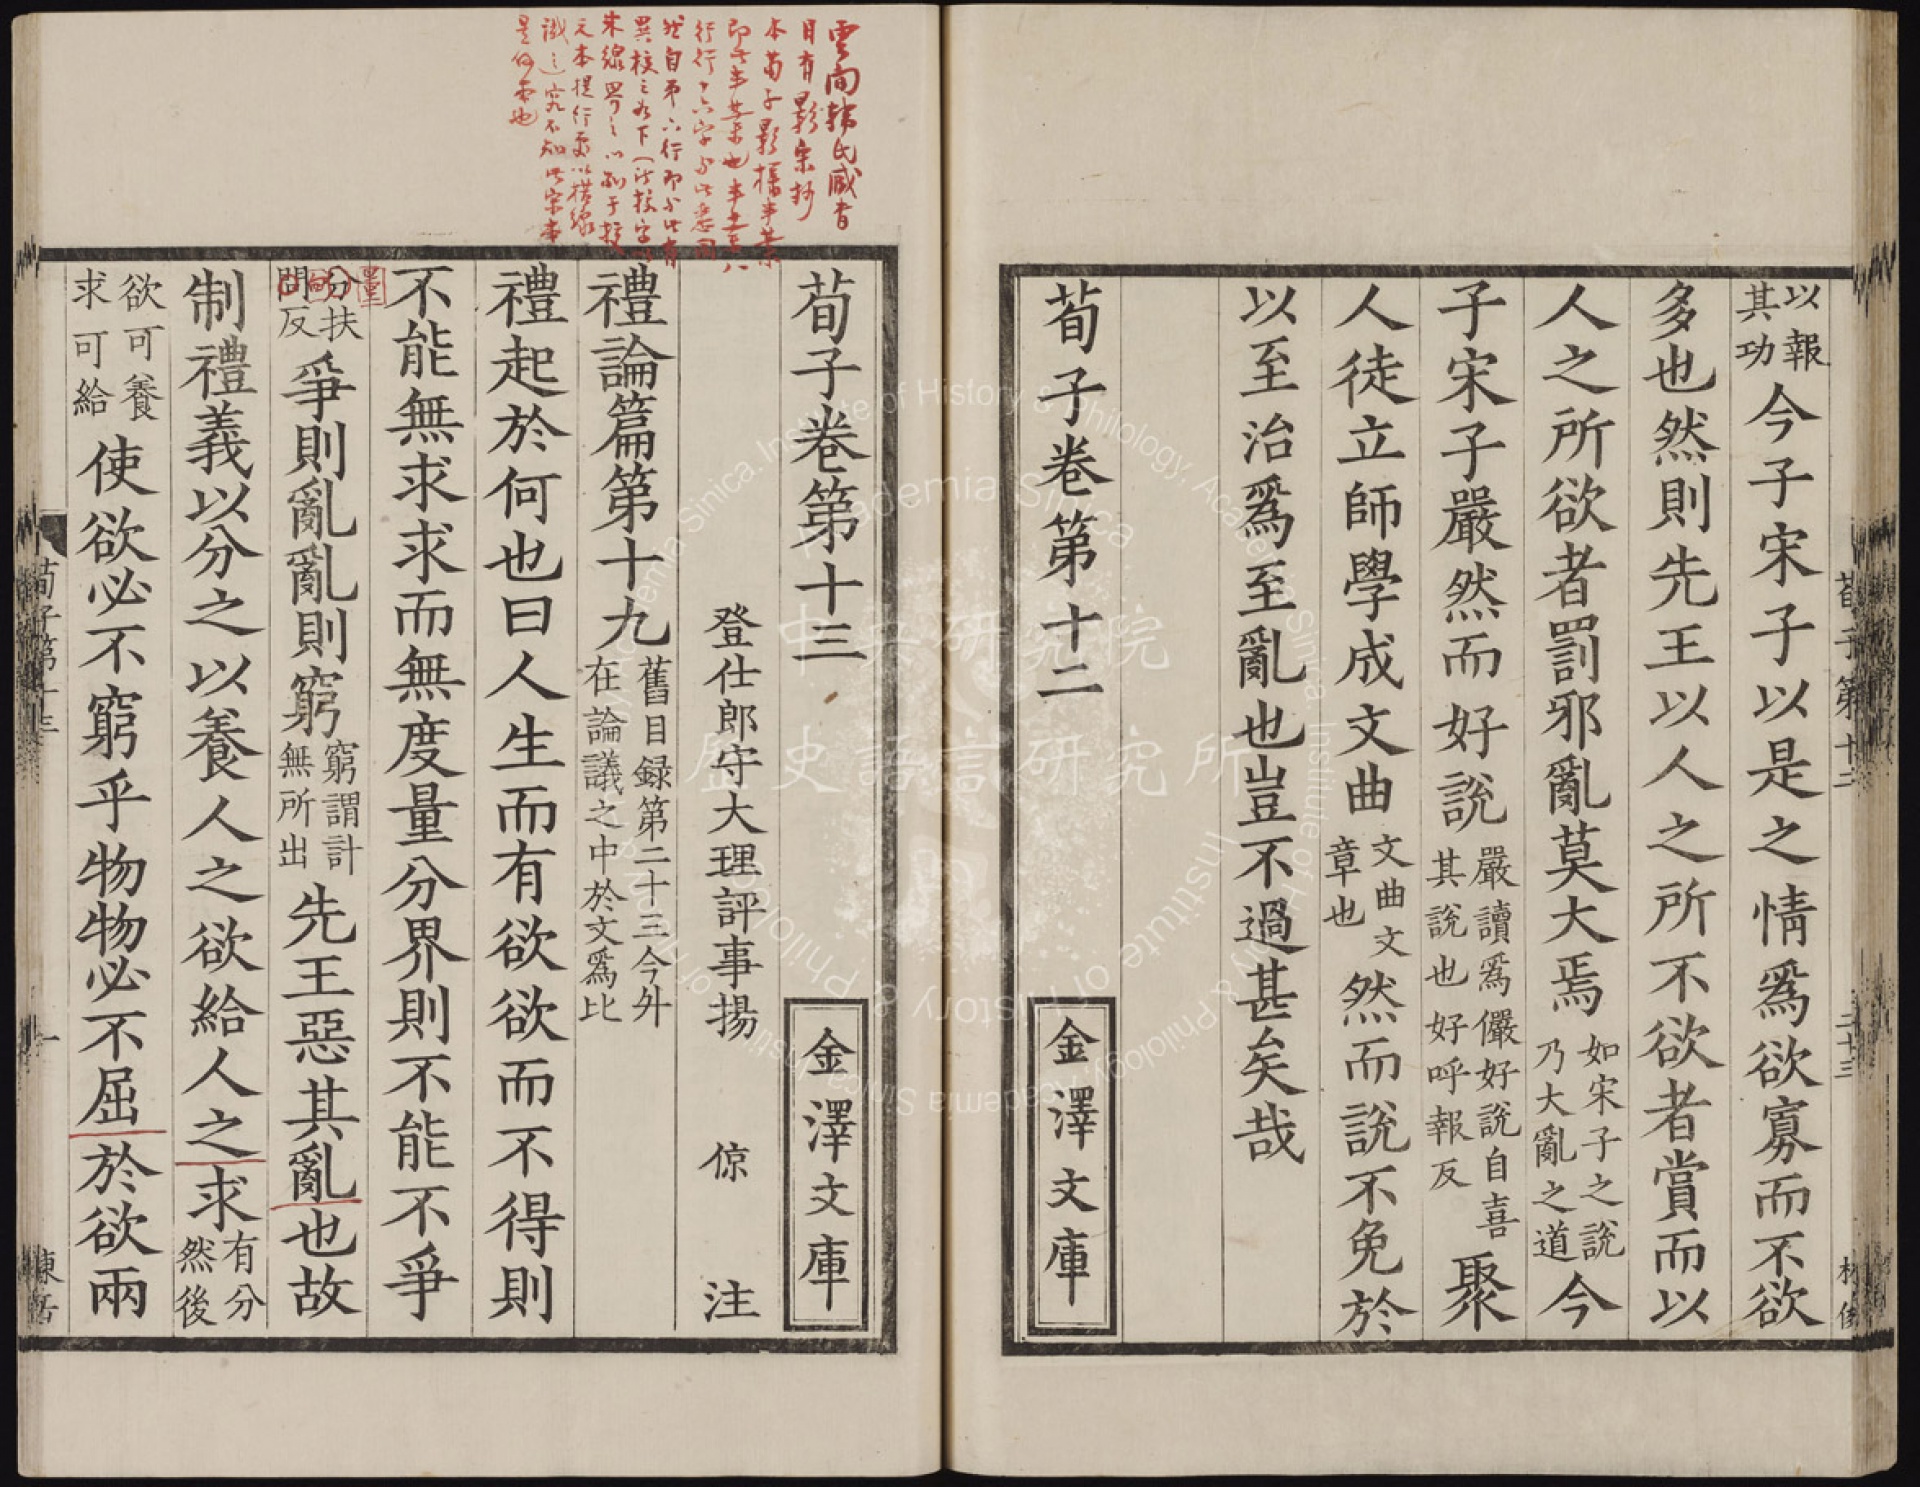 以報其功今子宋子以是之情爲欲寡而不欲
多也然則先王以人之所不欲者賞而以
人之所欲者罰邪亂莫大焉如宋子之說乃大亂之道今
子宋子嚴然而好說嚴讀爲儼好說自喜其說也好呼報反聚
人徒立師學成文曲文曲文章也然而說不免於
以至治爲至亂也豈不過甚矣哉
荀子卷第十二
金澤文庫
荀子第十二
二十三
荀子卷第十三
金澤文庫
登仕郎守大理評事揚倞注
禮論篇第十九舊目録第二十三今外在論議之中於文爲比
禮起於何也曰人生而有欲欲而不得則
不能無求求而無度量分界則不能不爭
量
分扶問反爭則亂亂則窮窮謂計無所出先王惡其亂也故
制禮義以分之以養人之欲給人之求有分然後
欲可養求可給使欲必不窮乎物物必不屈於欲兩
荀子第十三
一
雲間韓氏藏書
目有影宋抄
本荀子影摸半葉
即此半葉也半葉八
行行十六字與此悉同
中央研究院
歷史語言研究所
Institute of History & Philology, Academia Sinica